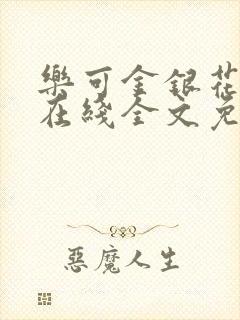 樂可金銀花
在綫全文免
惡魔人生